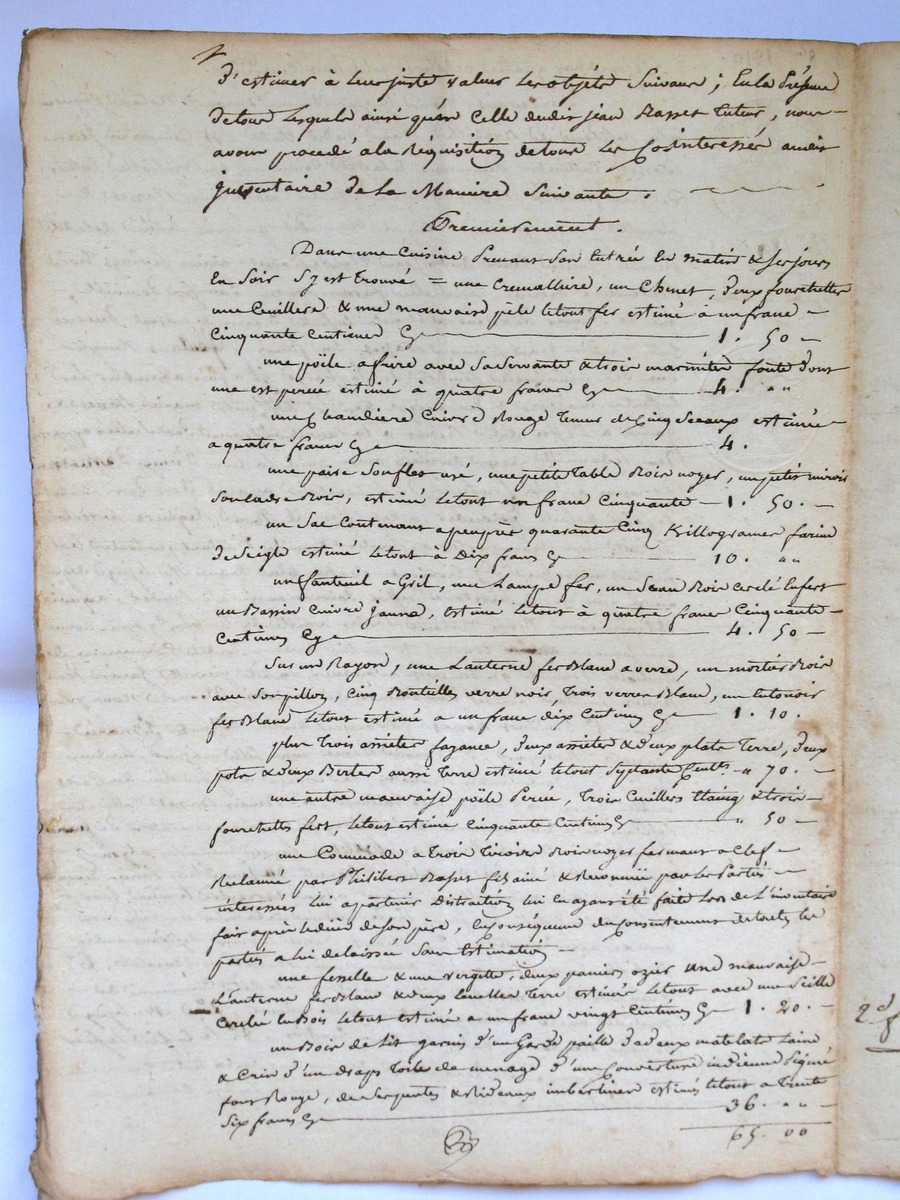 d'estimer à leur juste valeur les objets suivans ; En la présence
de tous lesquels ainsi qu'en celle dudit jean Rasset tuteur, nous
avons procedé a la Réquisition de tous les cointeressés audit
inventaire de la Maniere suivante .
Premierement .
Dans une Cuisine Prenant son Entrée En matin & ses jours
En soir s'y est trouvé = une Cremalliere, un Chenet, deux fourchettes
une Cuillere & une mauvaise pèle le tout fer estimé à un franc
Cinquante Centimes Cy 1 . 50
une poële a frire avec sa servante & trois marmites fonte dont
une est percée estimé à quatre francs Cy 4 . "
une Chaudiere Cuivre Rouge tenant de Cinq seaux estimée
a quatre francs Cy 4 .
une paire soufles usé, une petite table Bois noyer, un petit miroir
son cadre Bois, estimé le tout un franc Cinquante 1 . 50 .
un sac Contenant a peu près quarante Cinq Killogrames farine
de Seigle estimé le tout à Dix francs Cy 10 . "
un fauteuil a Gril, une Lampe fer, un Seau Bois cerclé En fert
un Bassin Cuivre jaune, estimé le tout à quatre francs Cinquante
Centimes Cy 4 . 50
Sur un Rayon, une Lanterne fer Blanc a verre, un mortier Bois
avec son pillon, Cinq Bouteilles verre noir, trois verres Blanc, un entonoir
fer Blanc le tout estimé a un franc dix Centimes Cy 1 . 10 .
plus trois assietes fayance, deux assietes & deux plats terre, deux
pots & deux aussi terre estimé le tout septante Centes " 70 .
une autre mauvaise poële Percée, trois Cuillers Etaing & trois
fourchettes fert, le tout estimé cinquante Centimes Cy " 50
une Commode a trois tiroirs Bois noyer fermant a Clef
Reclamé par Philibert Rasset fils ainé & Reconnue par les Parties
interessées lui apartenir Distraction lui en ayant été faite Lors de L'inventaire
fait après le décès de son père, En conséquence du consentement de toutes les
parties a lui delaissée sans Estimation
une fesselle & une vergette, deux paniers ozier une mauvaise
Lanterne fer Blanc & deux terre estimée le tout avec une Seille
Cerclée en Bois le tout estimé a un franc vingt Centimes Cy 1 . 20 .
un Bois de Lit garni d'un Garde paille de deux matelats Laine
& Crin d'un draps toile de menage d'une Couverture indienne piquée
fond Rouge, de & Rideaux estimés le tout a trente
six francs Cy 36 . "
65 . 00